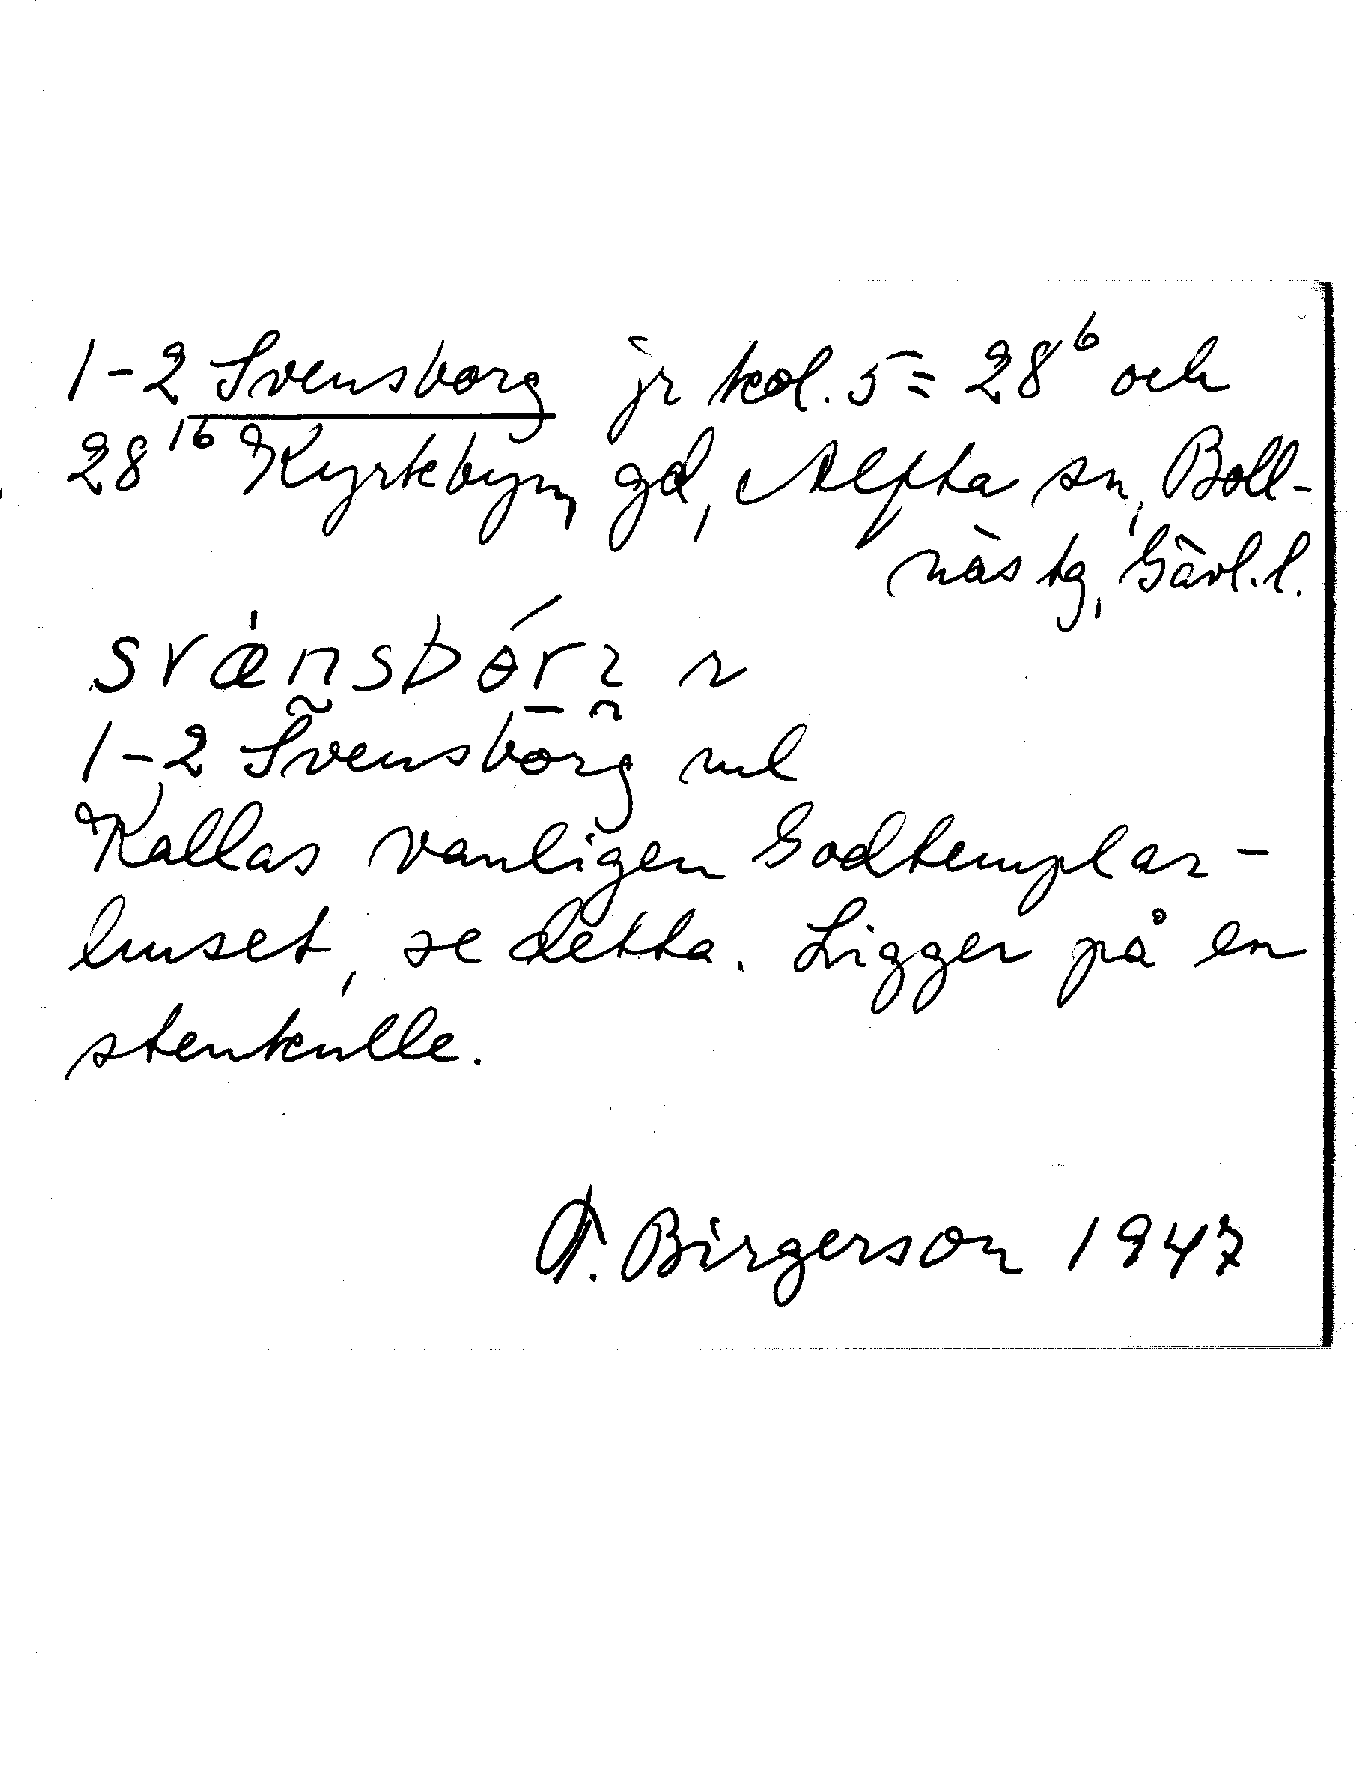 1-2 Svensborg jr kol. 5 = 28⁶ och
28¹⁶ Kyrkbyn, gd, Alfta sn, Boll-
näs tg, Gävl. l.
svänsbórɿ n
1-2 Svensborg ml
Kallas vanligen Godtemplar-
huset, se detta. Ligger på en
stenkulle.
A. Birgerson 1947